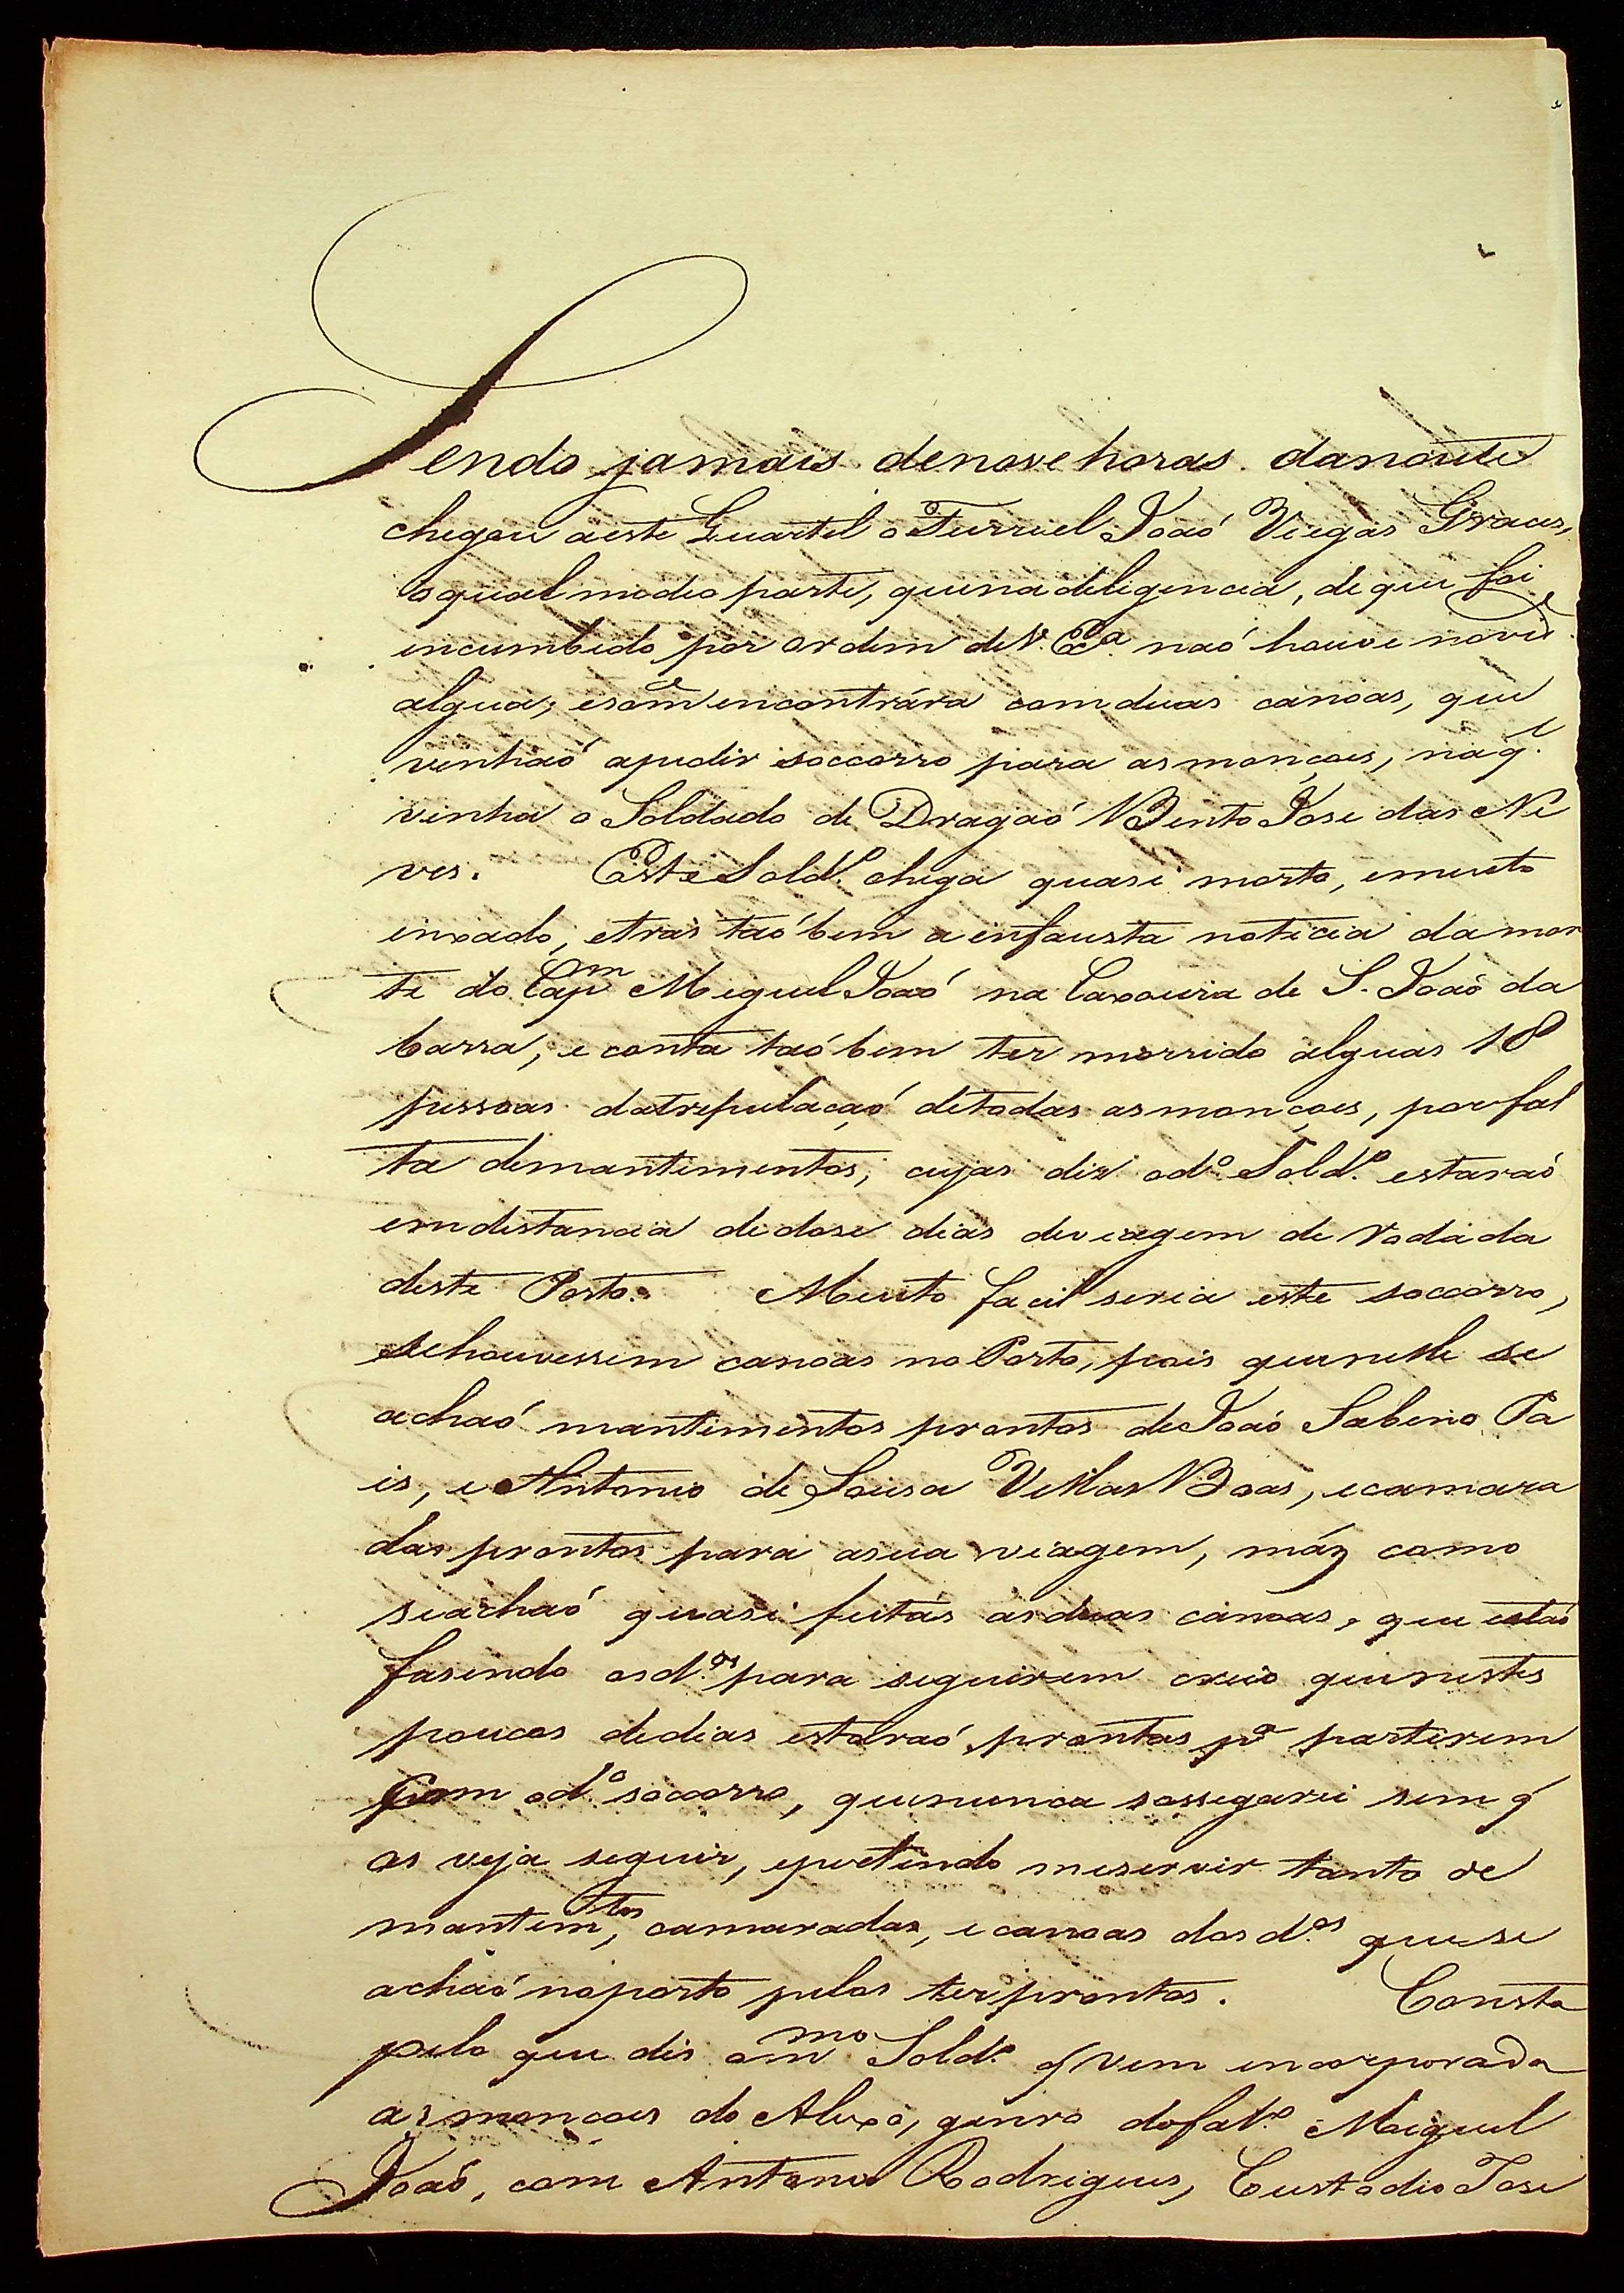 Sendo jamais denove horas danoute
chegou aeste Quartel o Furriel Joaó Viegas Graces,
oqual medeo parte, quena deligencia, de que foi
incumbido por ordem de V. Exª naó houve novid.ᵉ
algua; esom.ᵉ encontrára comduas canoas, que
vinhaó apedir soccorro para asmonçoes, naq.ˡ
vinha o Soldado de Dragaó Bento Jose das Ne
ves. Este Sold.º chega quasi morto, emuito
inxado, etras taóbem a enfausta noticia damor
te do Cap.ᵐ Miguel Joaó na Caxoeira de S. Joaó da
barra, e conta taóbem ter morrido alguas 18
pessoas datripulaçaó detodas asmonçoes, porfal
ta demantimentos; cujas diz od.º Sold.º estaraó
emdistancia dedose dias deviagem de rodada
deste Porto. Muito facil seria este soccorro,
sehouvessem canoas no Porto, pois quenelle se
achaó mantimentos prontos de Joaó Sabino Pa
is, e Antonio de Sousa Villas Boas, ecamara
das prontos para asua viagem, máz como
seachaó quasi feitas asduas canoas, que estaó
fasendo osd.ᵒˢ para seguirem creio quenestes
poucos dedias estaraó prontas pª partirem
Com od.º socorro, quenunca sossegarei sem q̃
os veja seguir, epretendo meservir tanto de
mantim.ᵗᵒˢ, camaradas, ecanoas dosd.ᵒˢ quese
achaó noporto pelos terprontos. Consta
pelo que dis om.ᵐᵒ Sold.º q̃ vem incorporada
asmoncoes do Aleixo, genro dofal.º Miguel
Joaó, com Antonio Rodrigues, Custodio Jose